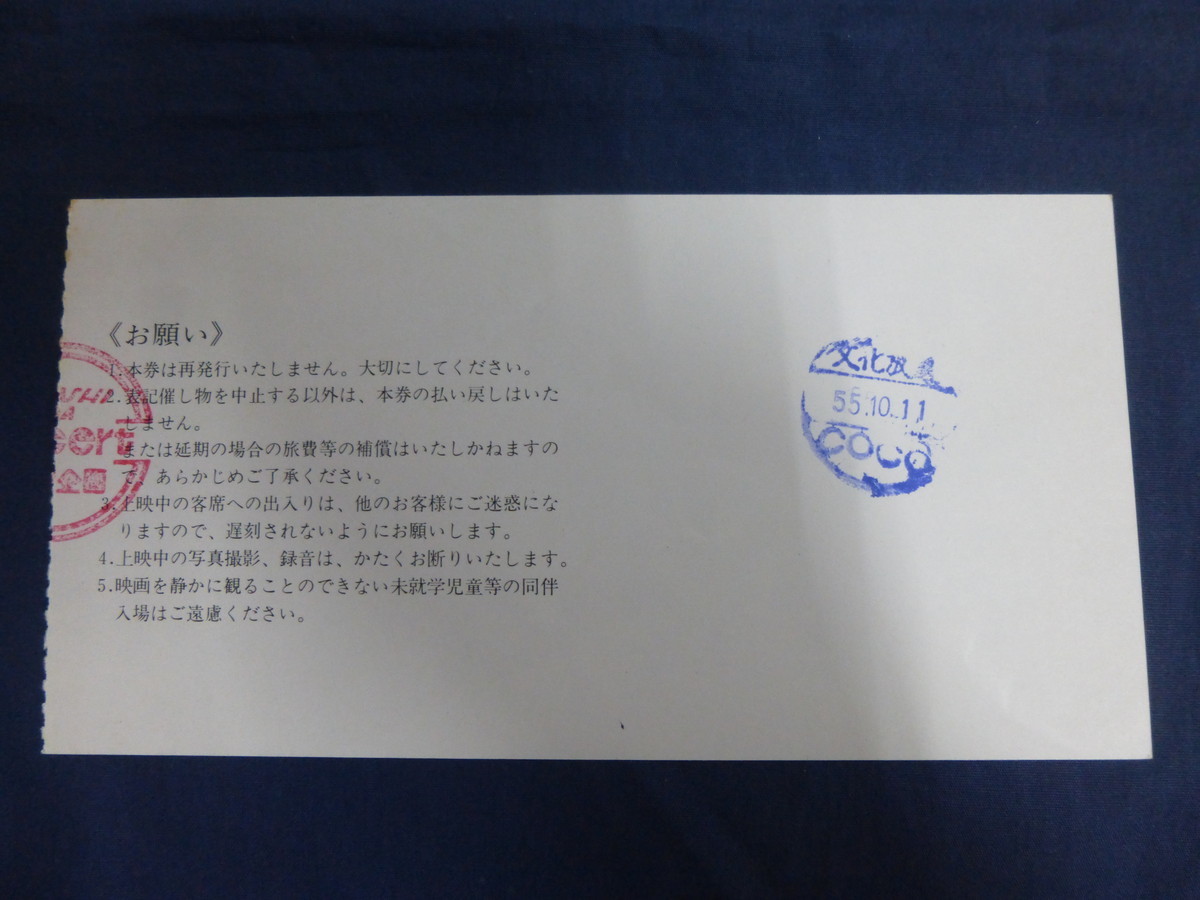 《お願い》
1.本券は再発行いたしません。大切にしてください。
2.表記催し物を中止する以外は、本券の払い戻しはいた
しません。
または延期の場合の旅費等の補償はいたしかねますの
で、あらかじめご了承ください。
3.上映中の客席への出入りは、他のお客様にご迷惑にな
りますので、遅刻されないようにお願いします。
4.上映中の写真撮影、録音は、かたくお断りいたします。
5.映画を静かに観ることのできない未就学児童等の同伴
入場はご遠慮ください。
企画
文化放
55.10.11
COCO